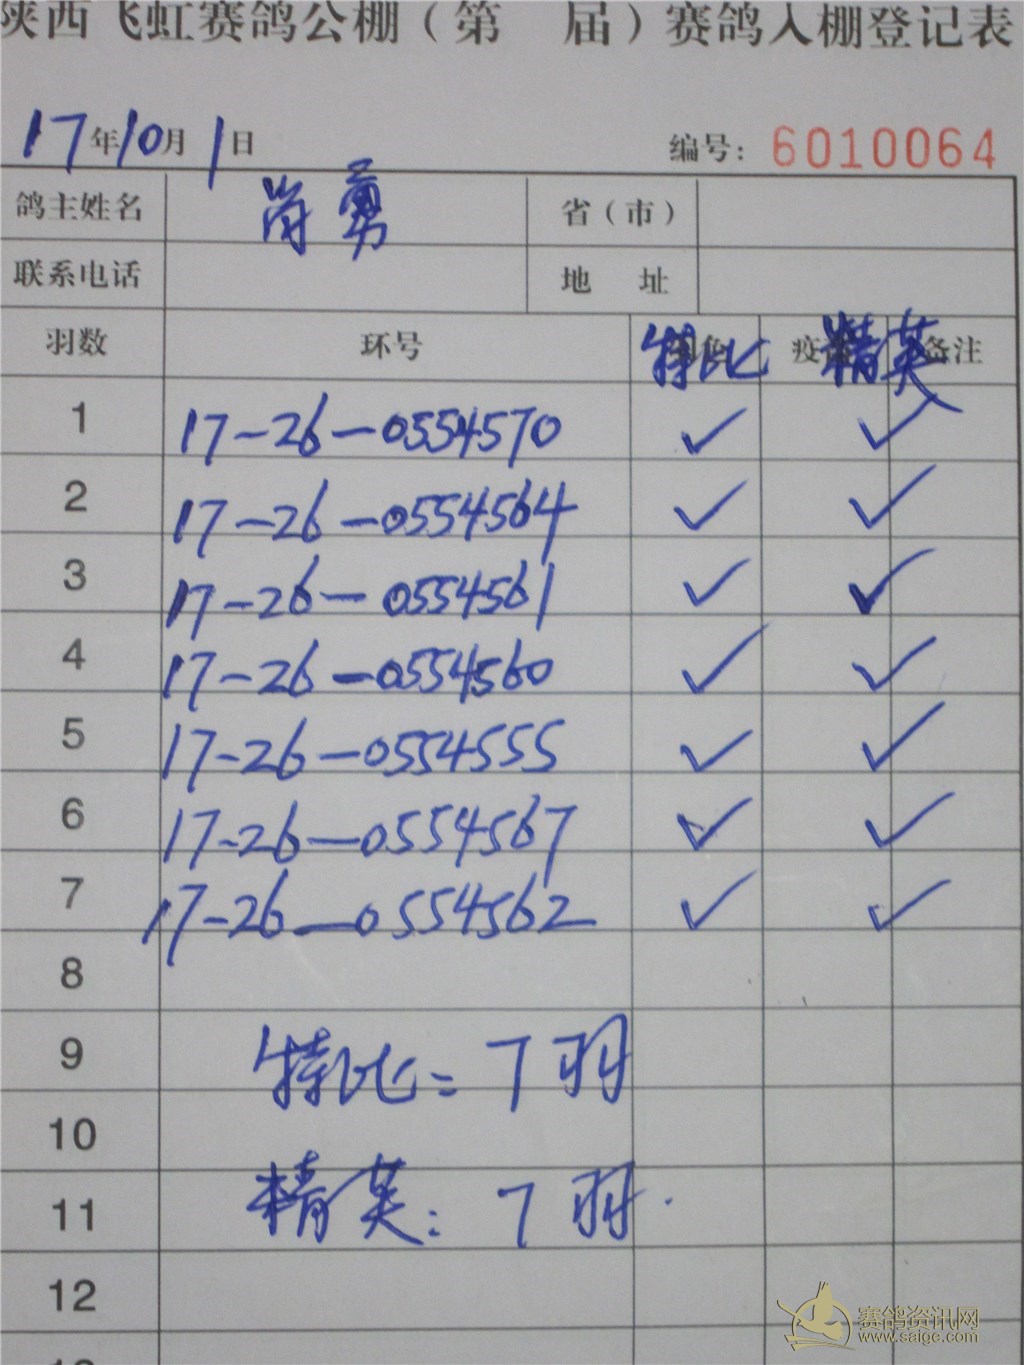 陕西飞虹赛鸽公棚（第 届）赛鸽入棚登记表
17年10月1日 编号：6010064
鸽主姓名 尚勇 省（市）
联系电话 地 址
羽数 环号 特比 疫 精英 备注
1 17-26-0554570 ✓ ✓
2 17-26-0554564 ✓ ✓
3 17-26-0554561 ✓ ✓
4 17-26-0554560 ✓ ✓
5 17-26-0554555 ✓ ✓
6 17-26-0554567 ✓ ✓
7 17-26-0554562 ✓ ✓
8
9 特比：7羽
10
11 精英：7羽.
12
赛鸽资讯网
www.saige.com